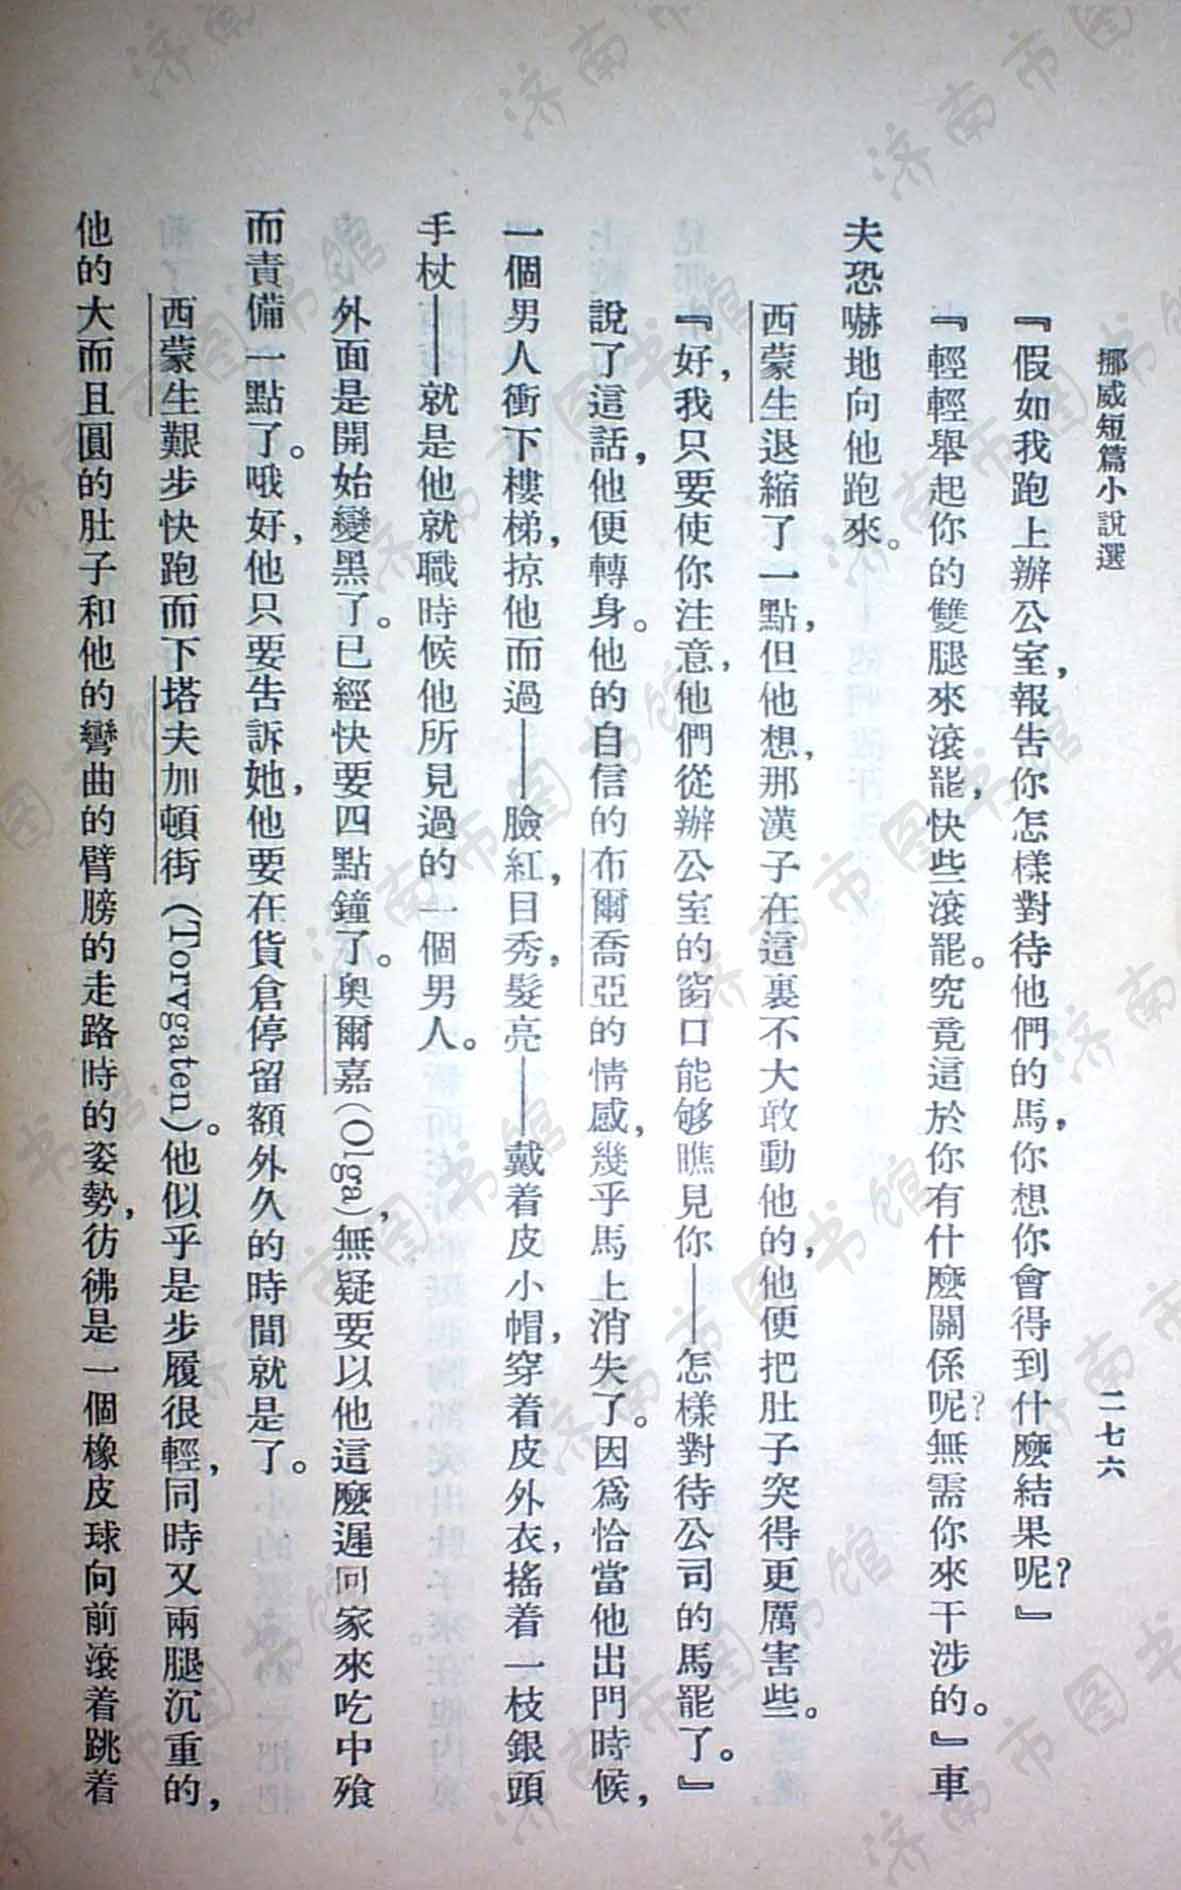 挪威短篇小說選
二七六
『假如我跑上辦公室，報告你怎樣對待他們的馬，你想你會得到什麼結果呢？』
『輕輕舉起你的雙腿來滾罷，快些滾罷。究竟這於你有什麼關係呢？無需你來干涉的。』車
夫恐嚇地向他跑來。
西蒙生退縮了一點，但他想，那漢子在這裏不大敢動他的，他便把肚子突得更厲害些。
『好，我只要使你注意，他們從辦公室的窗口能够瞧見你——怎樣對待公司的馬罷了。』
說了這話，他便轉身。他的自信的布爾喬亞的情感，幾乎馬上消失了。因爲恰當他出門時候，
一個男人衝下樓梯，掠他而過——臉紅，目秀，髮亮——戴着皮小帽，穿着皮外衣，搖着一枝銀頭
手杖——就是他就職時候他所見過的一個男人。
外面是開始變黑了。已經快要四點鐘了。奧爾嘉(Olga)，無疑要以他這麼遲回家來吃中飱
而責備一點了。哦好，他只要告訴她，他要在貨倉停留額外久的時間就是了。
西蒙生艱步快跑而下塔夫加頓街(Torvgaten)。他似乎是步履很輕，同時又兩腿沉重的，
他的大而且圓的肚子和他的彎曲的臂膀的走路時的姿勢，彷彿是一個橡皮球向前滾着跳着
济南市图书馆